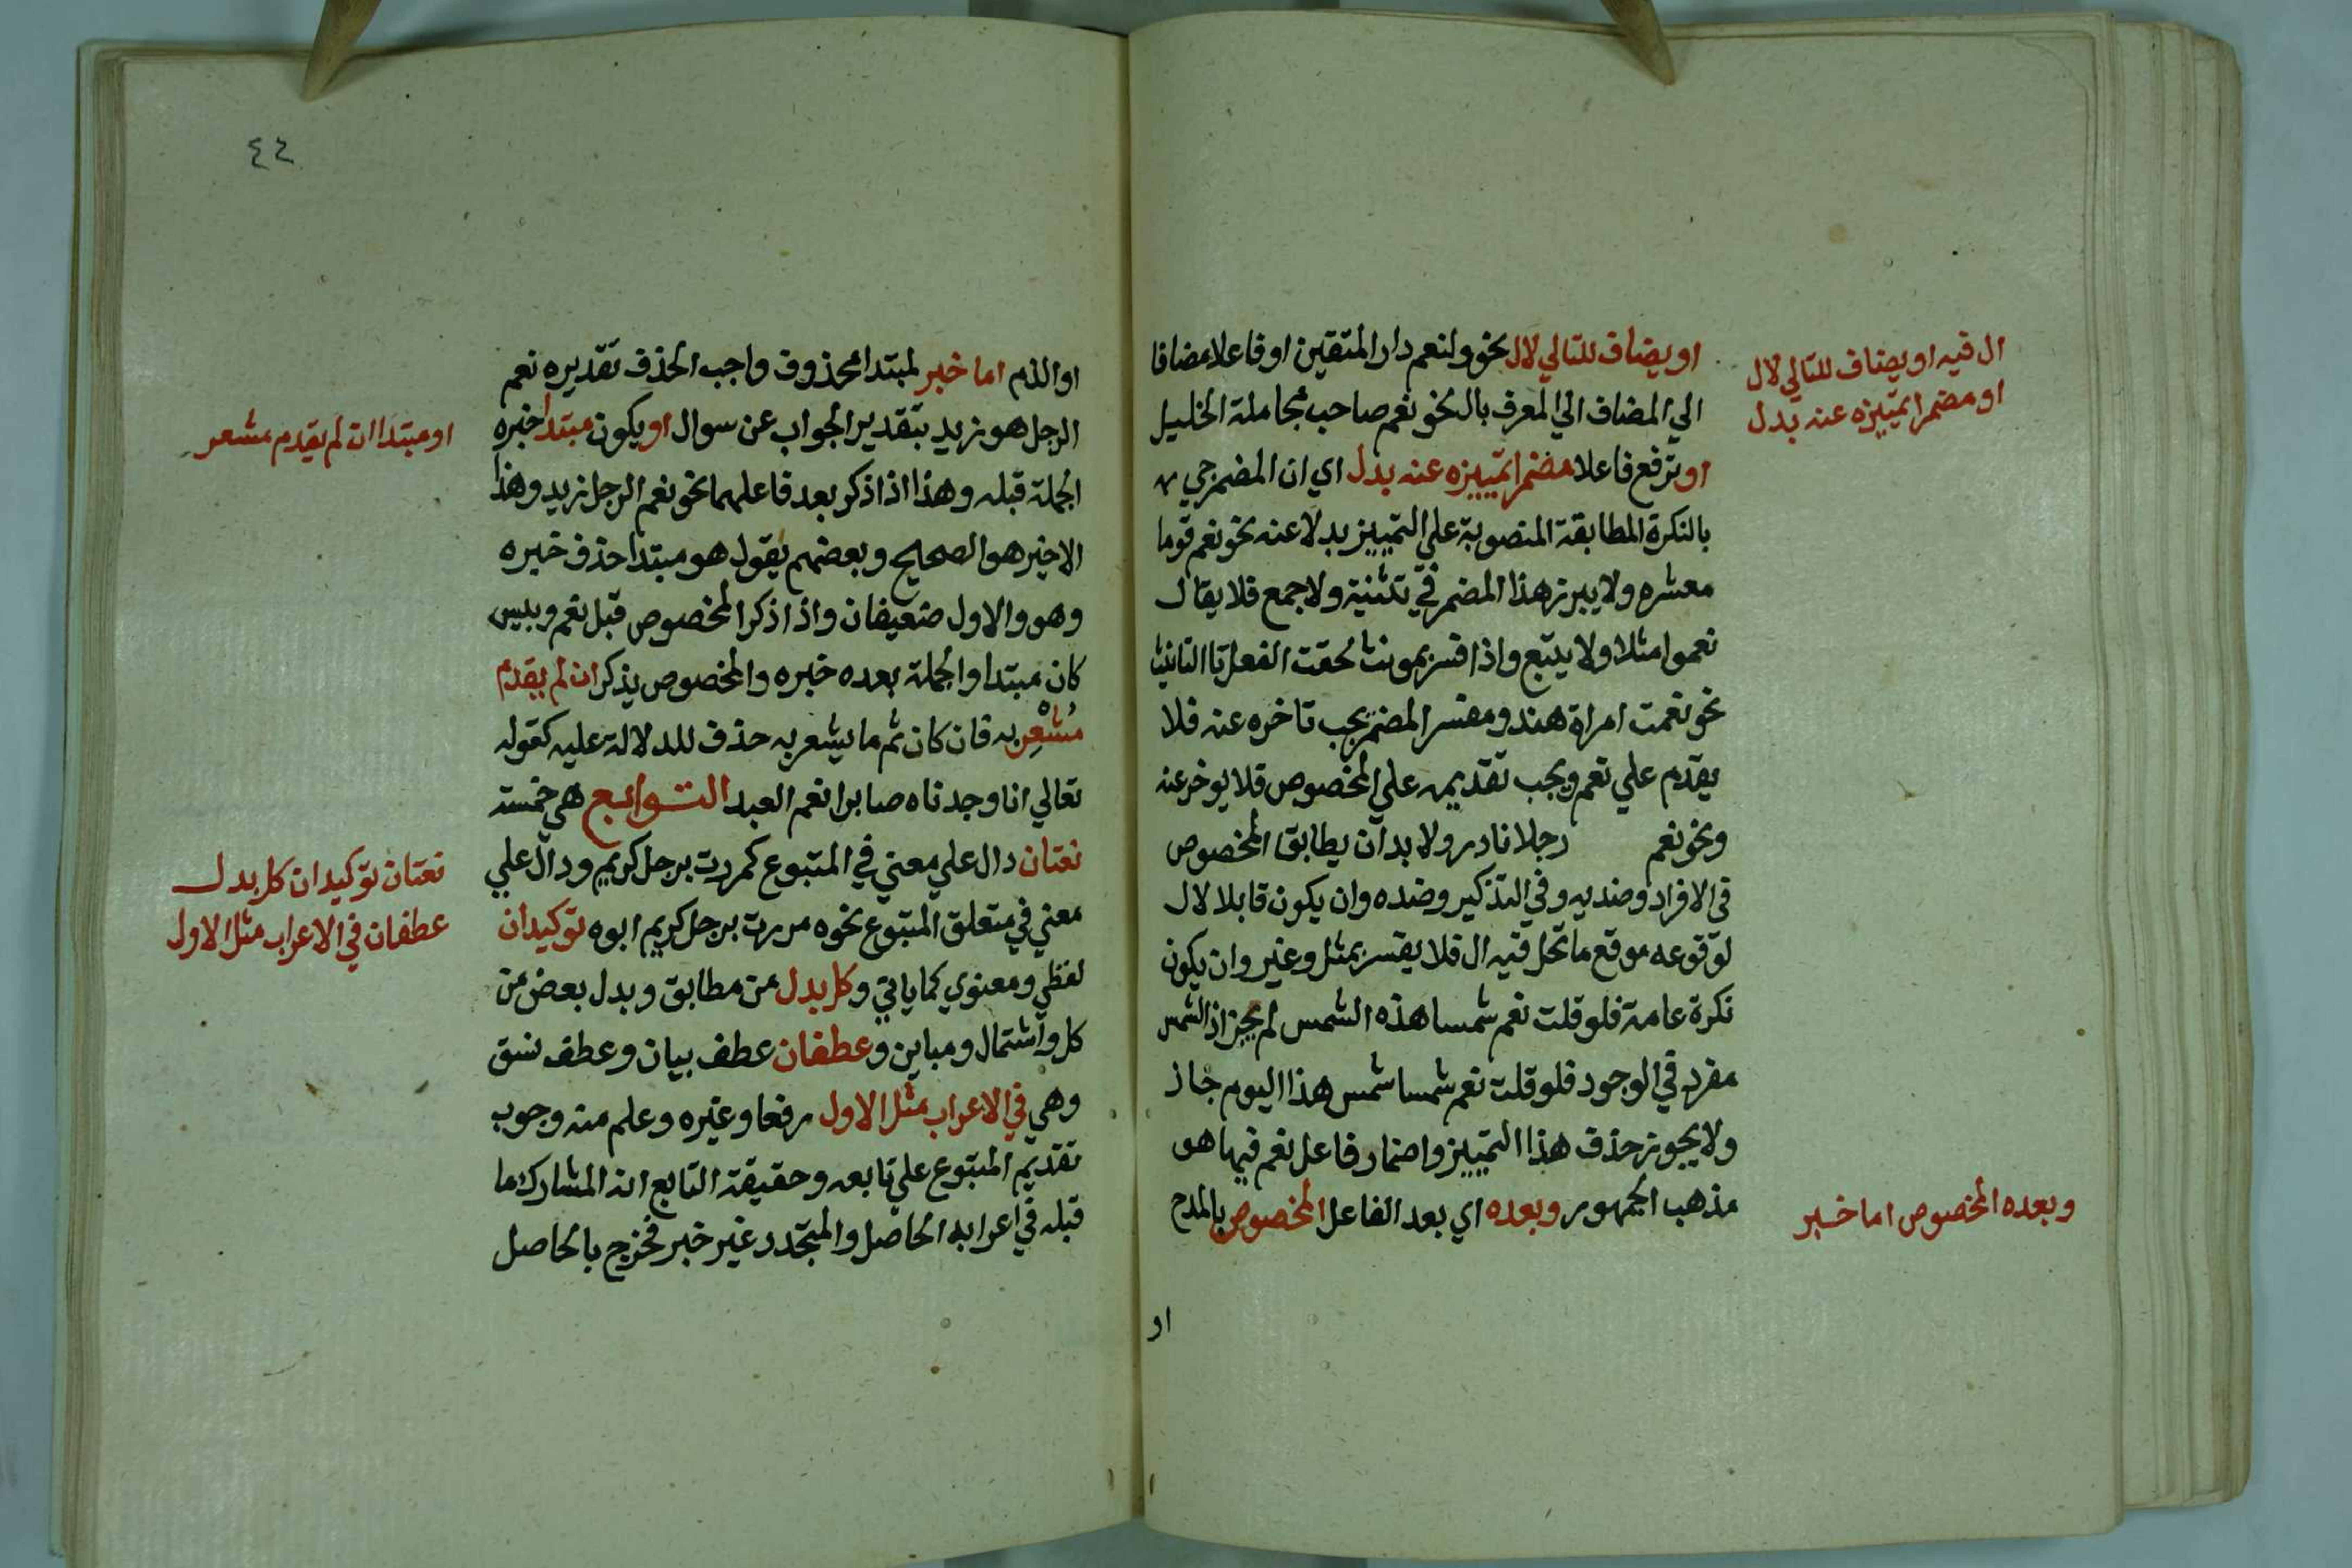 ال فيه او يضاف للتالي لال
او مضمرا تمييزه عنه بدل
او يضاف للتالي لال نحو ولنعم دار المتقين او فاعلا مضافا
الي المضاف الي المعرف بال نحو نعم صاحب مجاملة الخليل
او ترفع فاعلا مضمرا تمييزه عنه بدل اي ان المضمر جي
بالنكرة المطابقة المنصوبة علي التمييز بدلا عنه نحو نعم قوما
معشره ولا يبرز هذا المضمر في تثنية ولا جمع فلا يقال
نعموا مثلا ولا يتبع واذا فسر بمونث لحقت الفعل تا التانيث
نحو نعمت امراة هند ومفسر المضمر يجب تاخره عنه فلا
يقدم علي نعم ويجب تقديمه علي المخصوص فلا يوخر عنه
ونحو نعم رجلا نادر ولا بد ان يطابق المخصوص
في الافراد وضديه وفي التذكير وضده وان يكون قابلا لال
لوقوعه موقع ما تحل فيه ال فلا يفسر بمثل وغير وان يكون
نكرة عامة فلو قلت نعم شمسا هذه الشمس لم يجز اذ الشمس
مفرد في الوجود فلو قلت نعم شمسا شمس هذا اليوم جاز
ولا يجوز حذف هذا التمييز واضمار فاعل نعم فيها هو
مذهب الجمهور وبعده اي بعد الفاعل المخصوص بالمدح
وبعده المخصوص اما خبر
او
٤٤
او الذم اما خبر لمبتدا محذوف واجب الحذف تقديره نعم
الرجل هو زيد بتقدير الجواب عن سوال او يكون مبتدا خبره
او مبتدا ان لم يقدم مشعر
الجملة قبله وهذا اذا ذكر بعد فاعلهما نحو نعم الرجل زيد وهذا
الاخير هو الصحيح وبعضهم يقول هو مبتدا حذف خبره
وهو والاول ضعيفان واذا ذكر المخصوص قبل نعم وبيس
كان مبتدا والجملة بعده خبره والمخصوص يذكر ان لم يقدم
مُشْعِر به فان كان ثم ما يشعر به حذف للدلالة عليه كقوله
تعالي انا وجدناه صابرا نعم العبد التوابع هي خمسة
نعتان دال علي معني في المتبوع كمررت برجل كريم ودال علي
معني في متعلق المتبوع نحوه مررت برجل كريم ابوه توكيدان
نعتان توكيدان كل بدل
عطفان في الاعراب مثل الاول
لفظي ومعنوي كما ياتي وكل بدل من مطابق وبدل بعض من
كل واشتمال ومباين وعطفان عطف بيان وعطف نسق
وهي في الاعراب مثل الاول رفعا وغيره وعلم منه وجوب
تقديم المتبوع علي تابعه وحقيقة التابع انه المشارك ما
قبله في اعرابه الحاصل والمتجدد غير خبر فخرج بالحاصل